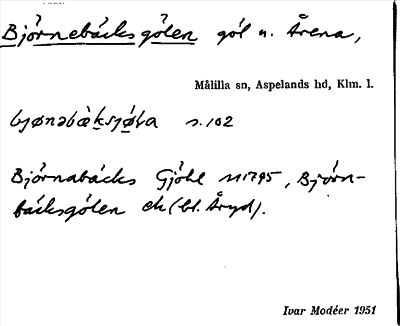 Björnebäcksgölen göl n. Årena,
Målilla sn, Aspelands hd, Klm. l.
bjønəbæksjøla s. 102
Björnabäcks Gjöhl 1795, Björn-
bäcksgölen ek (bl. Åryd).
Ivar Modéer 1951